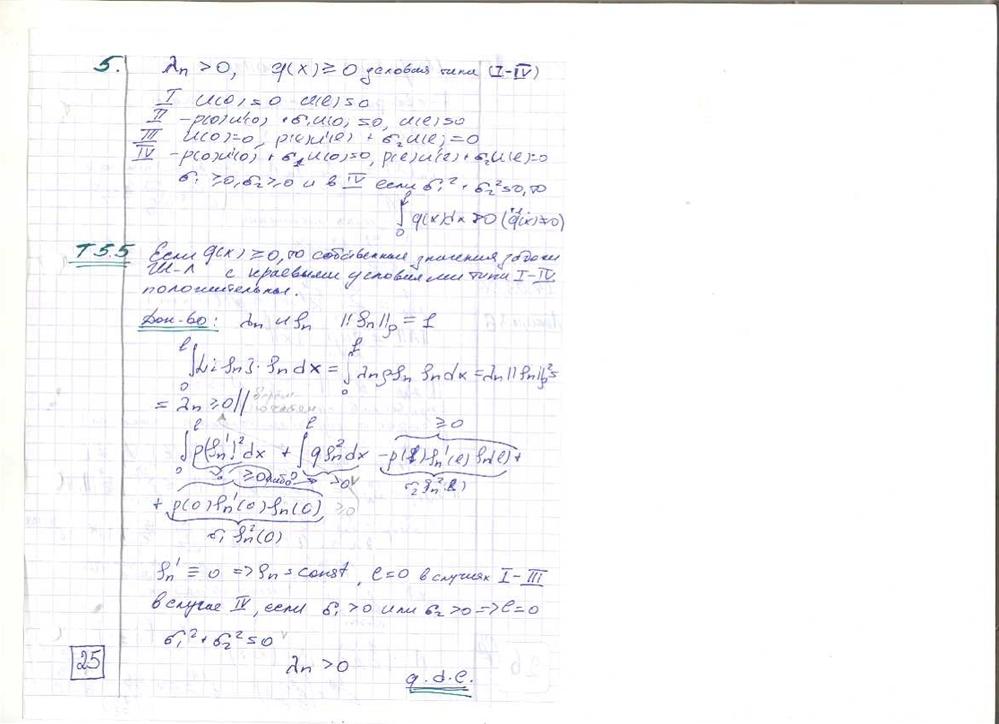 5. λn > 0, q(x) ≥ 0 условия типа (I-IV)
I u(0) = 0 u(l) = 0
II -p(0)u'(0) + σ₁u(0) = 0, u(l) = 0
III u(0) = 0, p(l)u'(l) + σ₂u(l) = 0
IV -p(0)u'(0) + σ₁u(0) = 0, p(l)u'(l) + σ₂u(l) = 0
σ₁ ≥ 0, σ₂ ≥ 0 и в IV если σ₁² + σ₂² = 0, то
∫₀ˡ q(x)dx > 0 (q(x) ≠ 0)
T 5.5 Если q(x) ≥ 0, то собственные значения задачи
Ш-Л с краевыми условиями типа I-IV
положительны.
Док-во: λn и yn ||yn||ρ = 1
∫₀ˡ L[yn]·yn dx = ∫₀ˡ λnρyn yn dx = λn||yn||ρ² =
= λn ≥ 0 ||
∫₀ˡ p(yn')²dx + ∫₀ˡ qyn²dx - p(l)yn'(l)yn(l) +
≥ 0
≥ 0 > 0 σ₂yn²(l)
+ p(0)yn'(0)yn(0) ≥ 0
σ₁yn²(0)
yn' ≡ 0 => yn = const, c = 0 в случаях I-III
в случае IV, если σ₁ > 0 или σ₂ > 0 => c = 0
σ₁² + σ₂² = 0
25 λn > 0 q.d.e.